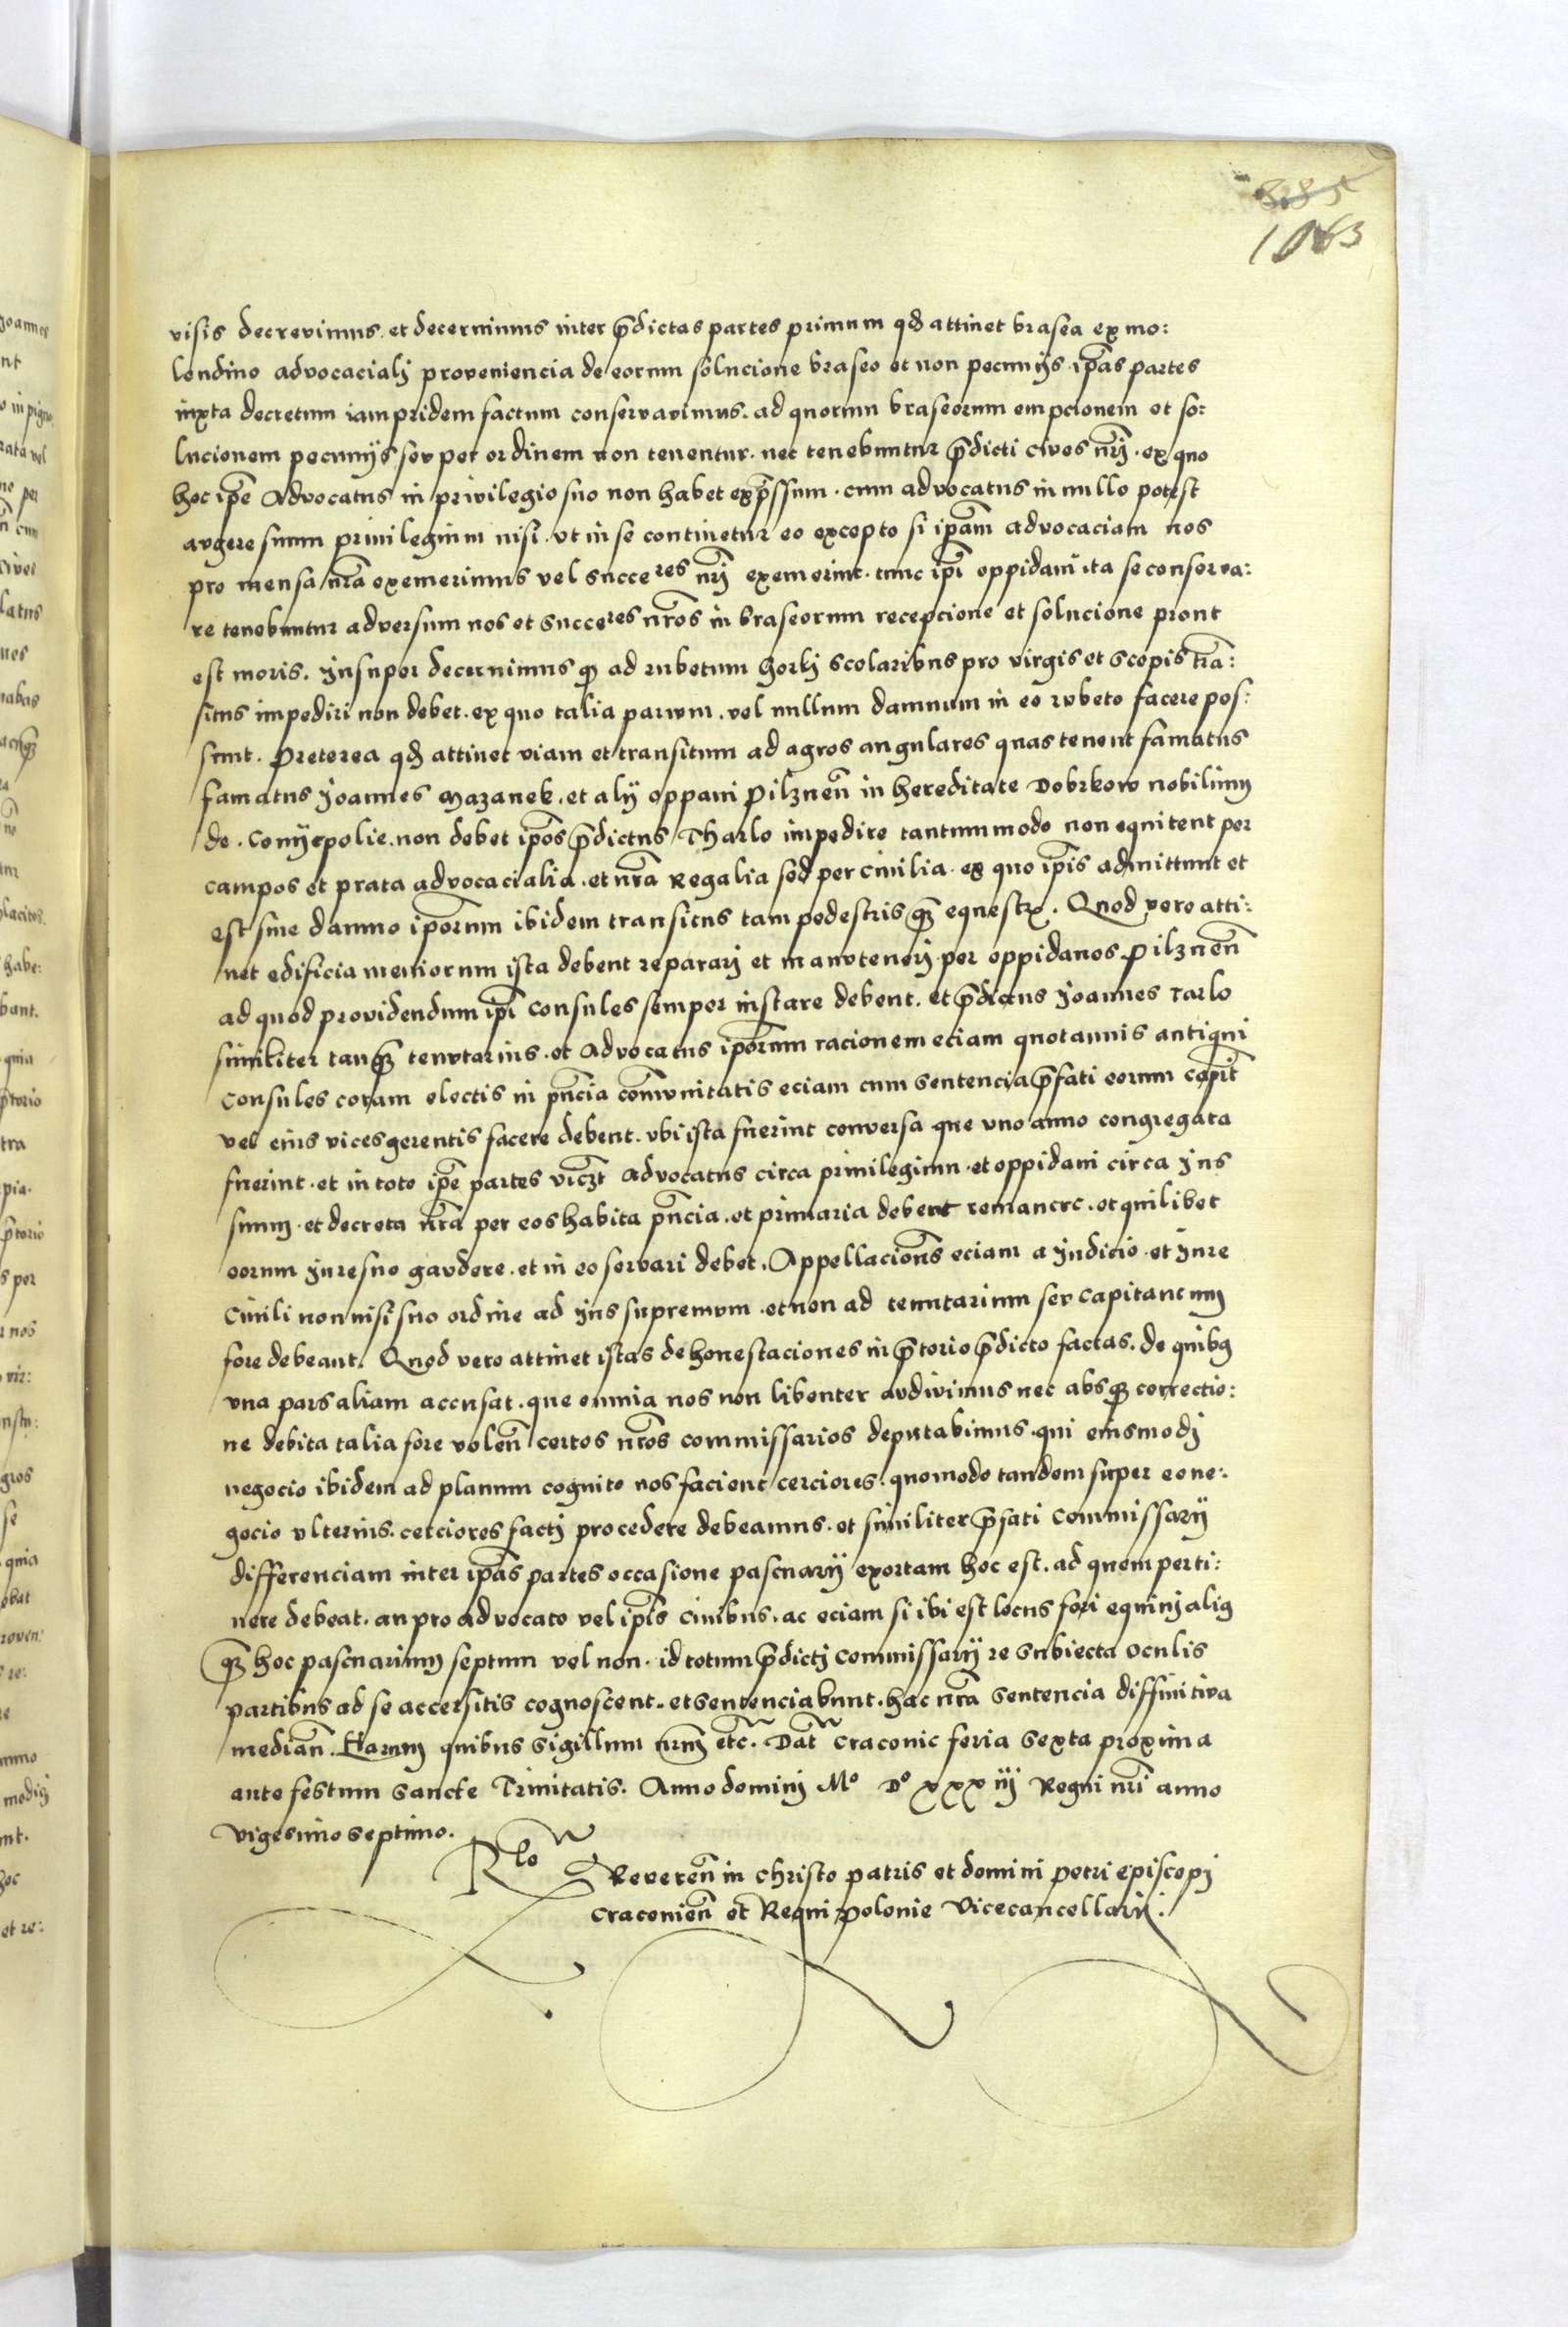 385
1063
visis decrevimus. et decernimus inter p̄dictas partes primum qd attinet brasea ex mo:
lendino advocacialj proveniencia de eorum solucione braseo et non pecunijs. ip̄as partes
iuxta decretum iampridem factum conservavimus. ad quorum braseorum empcionem et so:
lucionem pecunijs seu per ordinem non tenentur. nec tenebuntur p̄dicti cives nr̄j. ex quo
hoc ip̄e Advocatus in privilegio suo non habet exp̄ssum. cum advocatus in nullo potest
augere suum privilegium nisi. ut in se continetur eo excepto si ip̄am advocaciam nos
pro mensa nr̄a exemerimus vel succeres nr̄j exemerint. tunc ip̄i oppidani ita se conserva:
re tenebuntur adversum nos et succeres nr̄os in braseorum recepcione et solucione prout
est moris. Insuper decernimus q̄ ad rubetum horkj scolaribus pro virgis et scopis tra:
situs impediri non debet. ex quo talia parvum. vel nullum damnum in eo rubeto facere pos:
sunt. Preterea qd attinet viam et transitum ad agros angulares quas tenent famatus
famatus Joannes Mazanek. et alij oppani Pilznen̄ in hereditate Dobrkow nobilium
de. Conyecpolie. non debet ip̄os p̄dictus Tharlo impedire tantummodo non equitent per
campos et prata advocacialia. et nr̄a Regalia sed per civilia. ex quo ip̄is admittunt et
est sine damno ip̄orum ibidem transitus tam pedestris q̄ equestr. Quod vero atti:
net edificia meniorum ista debent repararj et manutenerj per oppidanos Pilznen̄
ad quod providendum ip̄i Consules semper instare debent. et p̄dictus Joannes Tarlo
similiter tanq̄ tenutarius. et Advocatus ip̄orum racionem eciam quotannis antiqui
Consules coram electis in pn̄cia com̄unitatis eciam cum sentencia p̄fati eorum capit̄
vel eius vices gerentis facere debent. ubi ista fuerint conversa que uno anno congregata
fuerint. et in toto ip̄e partes vicz̄t Advocatus circa privilegium. et oppidani circa Jus
suum. et decreta nr̄a per eos habita pn̄cia. et primaria debent remanere. et quilibet
eorum Jure suo gaudere. et in eo servari debet. Appellaciones eciam a Judicio. et Jure
Civili non nisi suo ordine ad Jus supremum. et non ad tenutarium seu capitaneum
fore debeant. Quod vero attinet istas dehonestaciones in p̄torio p̄dicto factas. de quibus
una pars aliam accusat. que omnia nos non libenter audivimus nec absq̄ correctio:
ne debita talia fore volen̄ certos nr̄os commissarios deputabimus. qui eiusmodj
negocio ibidem ad planum cognito nos facient cerciores. quomodo tandem super eo ne:
gocio ulterius. cerciores factj procedere debeamus. et similiter p̄fati Commissarij
differenciam inter ip̄as partes occasione pascuarij exortam hoc est. ad quem perti:
nere debeat. an pro advocato vel ip̄is civibus. ac eciam si ibi est locus fori equinj aliq
q̄ hoc pascuarium septum vel non. id totum p̄dictj Commissarij re subiecta oculis
partibus ad se accersitis cognoscent. et sentenciabunt. hac nr̄a sentencia diffinitiva
median̄. Harum quibus sigillum nr̄m etc̄. Dat̄ Craconie feria sexta proxima
ante festum Sancte Trinitatis. Anno dominj Mo Do xxxiij Regni nr̄i anno
vigesimo septimo.
Rlo Reveren̄ in christo patris et domini Petri Episcopj
Craconien̄ et Regni Polonie Vicecancellarij.